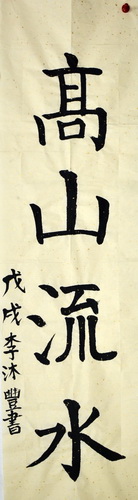 髙山流水
戊戌李沐豐書